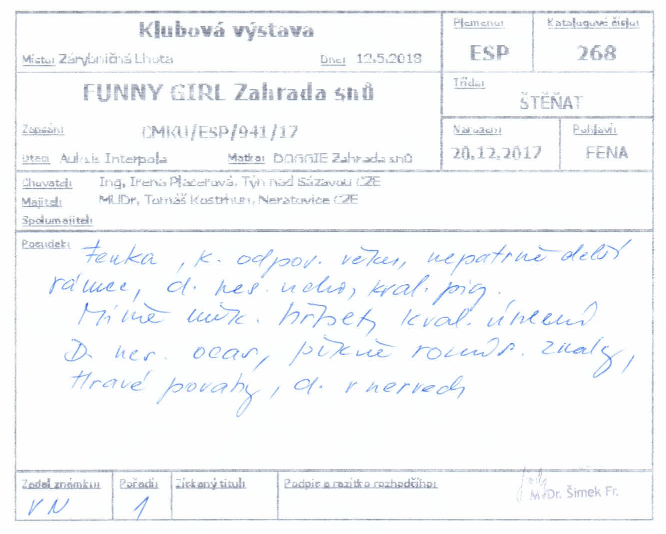 Klubová výstava
Místo: Zárybničná Lhota Dne: 12.5.2018
Plemeno: ESP
Katalogové číslo: 268
FUNNY GIRL Zahrada snů
Třída: ŠTĚŇAT
Zapsání: CMKU/ESP/941/17
Otec: Interpola Matka: DOGGIE Zahrada snů
Narození: 20.12.2017
Pohlaví: FENA
Chovatel: Ing. Irena Plačerová, Týn nad Sázavou CZE
Majitel: MUDr. Tomáš Neratovice CZE
Spolumajitel:
Posudek: Fenka, k. odpov. věku, nepatrně delší
rámec, d. nes. ucho, kval. pig.
Mírně měk. hřbet, kval.
D. nes. ocas, pěkně znaky,
Hravé povahy, d. v nervech
Zadal známku: VN
Pořadí: 1
Získaný titul:
Podpis a razítko rozhodčího:
MVDr. Šimek Fr.